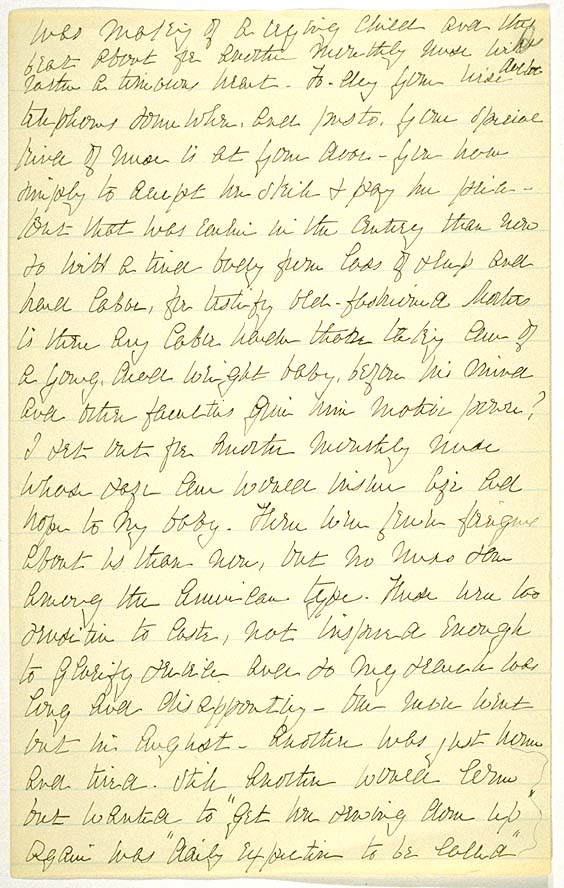 was making of a crying child and then
beat about for another monthly nurse with
rather a timorous heart. To-day your husband
telephones somewhere, and presto, your special
kind of nurse is at your door - you have
simply to accept her skill & pay her price -
But that was earlier in the century than now
so with a tired body from loss of sleep and
hard labor, for testify old-fashioned Mothers
is there any labor harder than taking care of
a young, dead weight baby, before his mind
and other faculties give him motive power?
I set out for another monthly nurse
whose safe care would insure life and
hope to my baby. There were fewer foreigners
about us than now, but no nurses save
among the American type. These were too
sensitive to caste, not inspired enough
to glorify service and so my search was
long and disappointing - One nurse went
out in August - Another was just home
and tired. Still another would come
but wanted to "get her sewing done up"
Again was "daily expecting to be called"